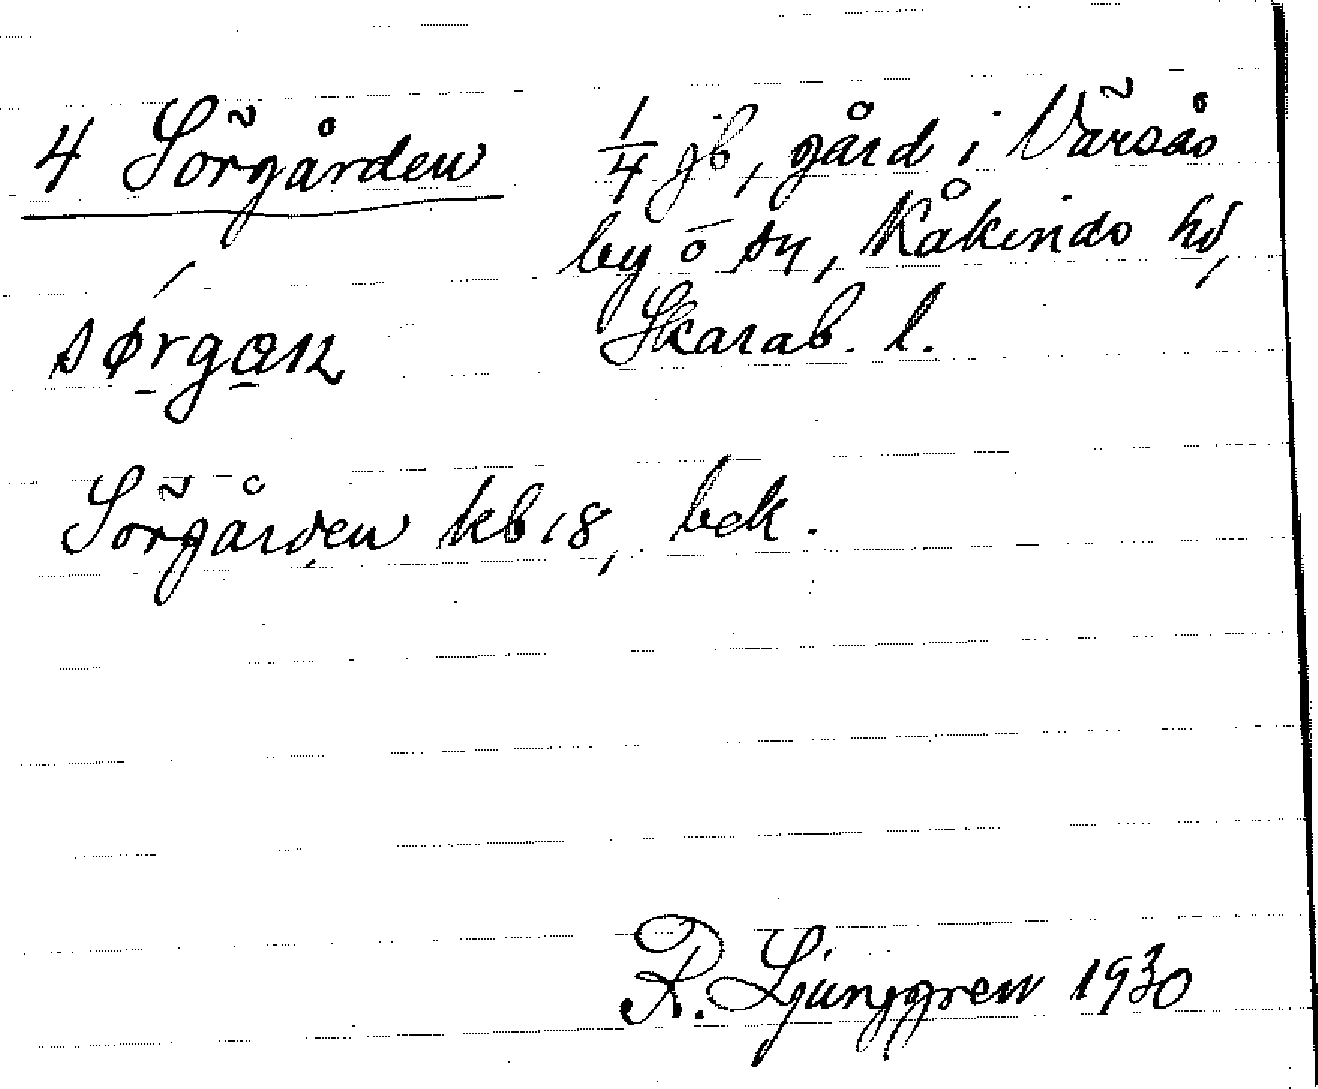 4 Sörgården
¼ jb, gård i Värsås
by o sn, Kåkinds hd,
Skarab. l.
Sörgården kb 18, bek.
R. Ljunggren 1930